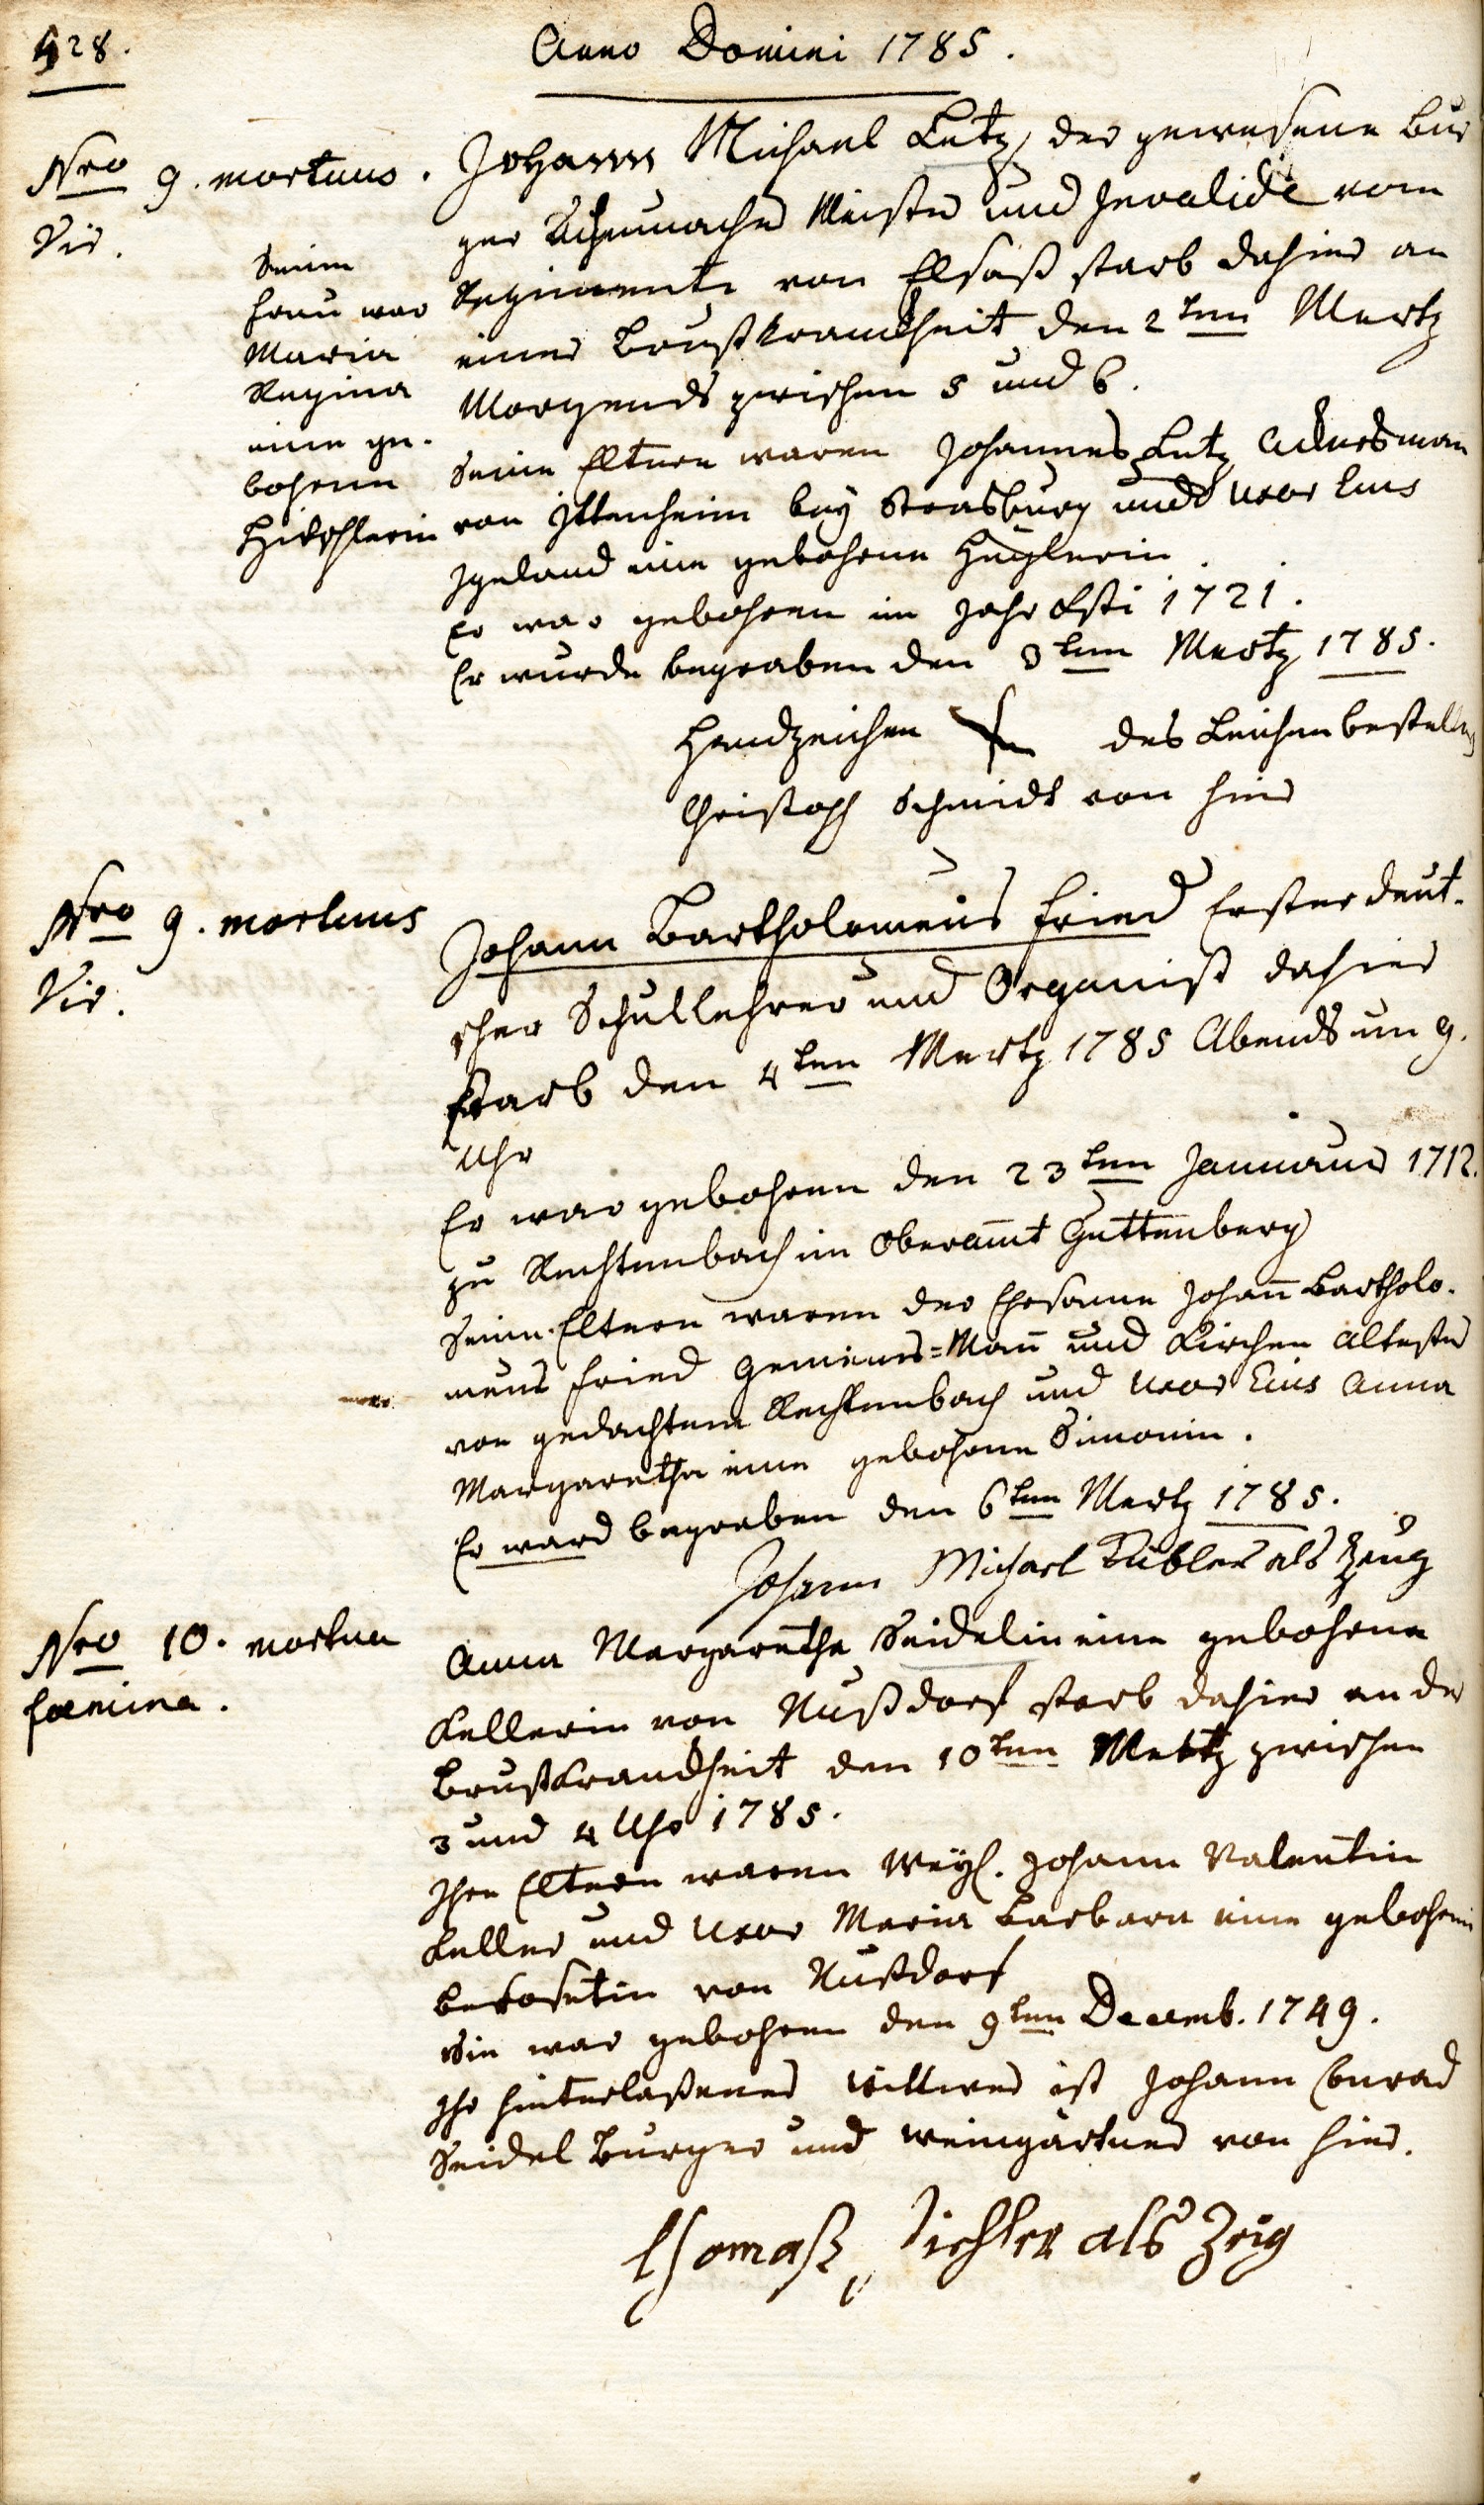 428.
Anno Domini 1785.
Nro 9. mortuus.
Vir.
Seine
Frau war
Maria
Regina
eine ge-
bohrene
Hirschlerin
Johann Michael Lutz, der gewesene Bur
ger Schumacher Meister und Invalide vom
Regimente von Elsaß starb dahier an
einer Brustkrankheit den 2ten Mertz
Morgends zwischen 5 und 6.
Seine Eltern waren Johannes Lutz Ackersman
von Ittenheim bey Strasburg und Uxor Eius
eine gebohrene Huglerin
Er war gebohren im Jahr Xsti 1721.
Er wurde begraben den 3ten Mertz 1785.
Handzeichen des Leichenbestellers
Christoph Schmidt von hier
Nro 9. mortuus
Vir.
Johann Bartholomeus Fried Erster deut-
scher Schullehrer und Organist dahier
starb den 4ten Mertz 1785 Abends um 9.
Uhr
Er war gebohren den 23ten Januarii 1712.
zu Rechtenbach im Oberamt Guttenberg
Seine Eltern waren der Ehrsame Johan̄ Bartholo-
meus Fried Gemeins=Man̄ und Kirchen Altester
von gedachtem Rechtenbach und Uxor Eius Anna
Margaretha eine gebohrne Simonin.
Er ward begraben den 6ten Mertz 1785.
Johann Michael Kübler als Zeug
Nro 10. mortua
fœmina.
Anna Margaretha Seidelin eine gebohrene
Kellerin von Nußdorf starb dahier an der
Brustkrankheit den 10ten Mertz zwischen
3 und 4 Uhr 1785.
Ihre Eltern waren Weyl. Johann Valentin
Keller und Uxor Maria Barbara eine gebohrne
von Nußdorf
Sie war gebohren den 9ten Decemb. 1749.
Ihr hinterlaßener Wittwer ist Johann Conrad
Seidel Burger und Weingärtner von hier.
Thomaß als Zeig